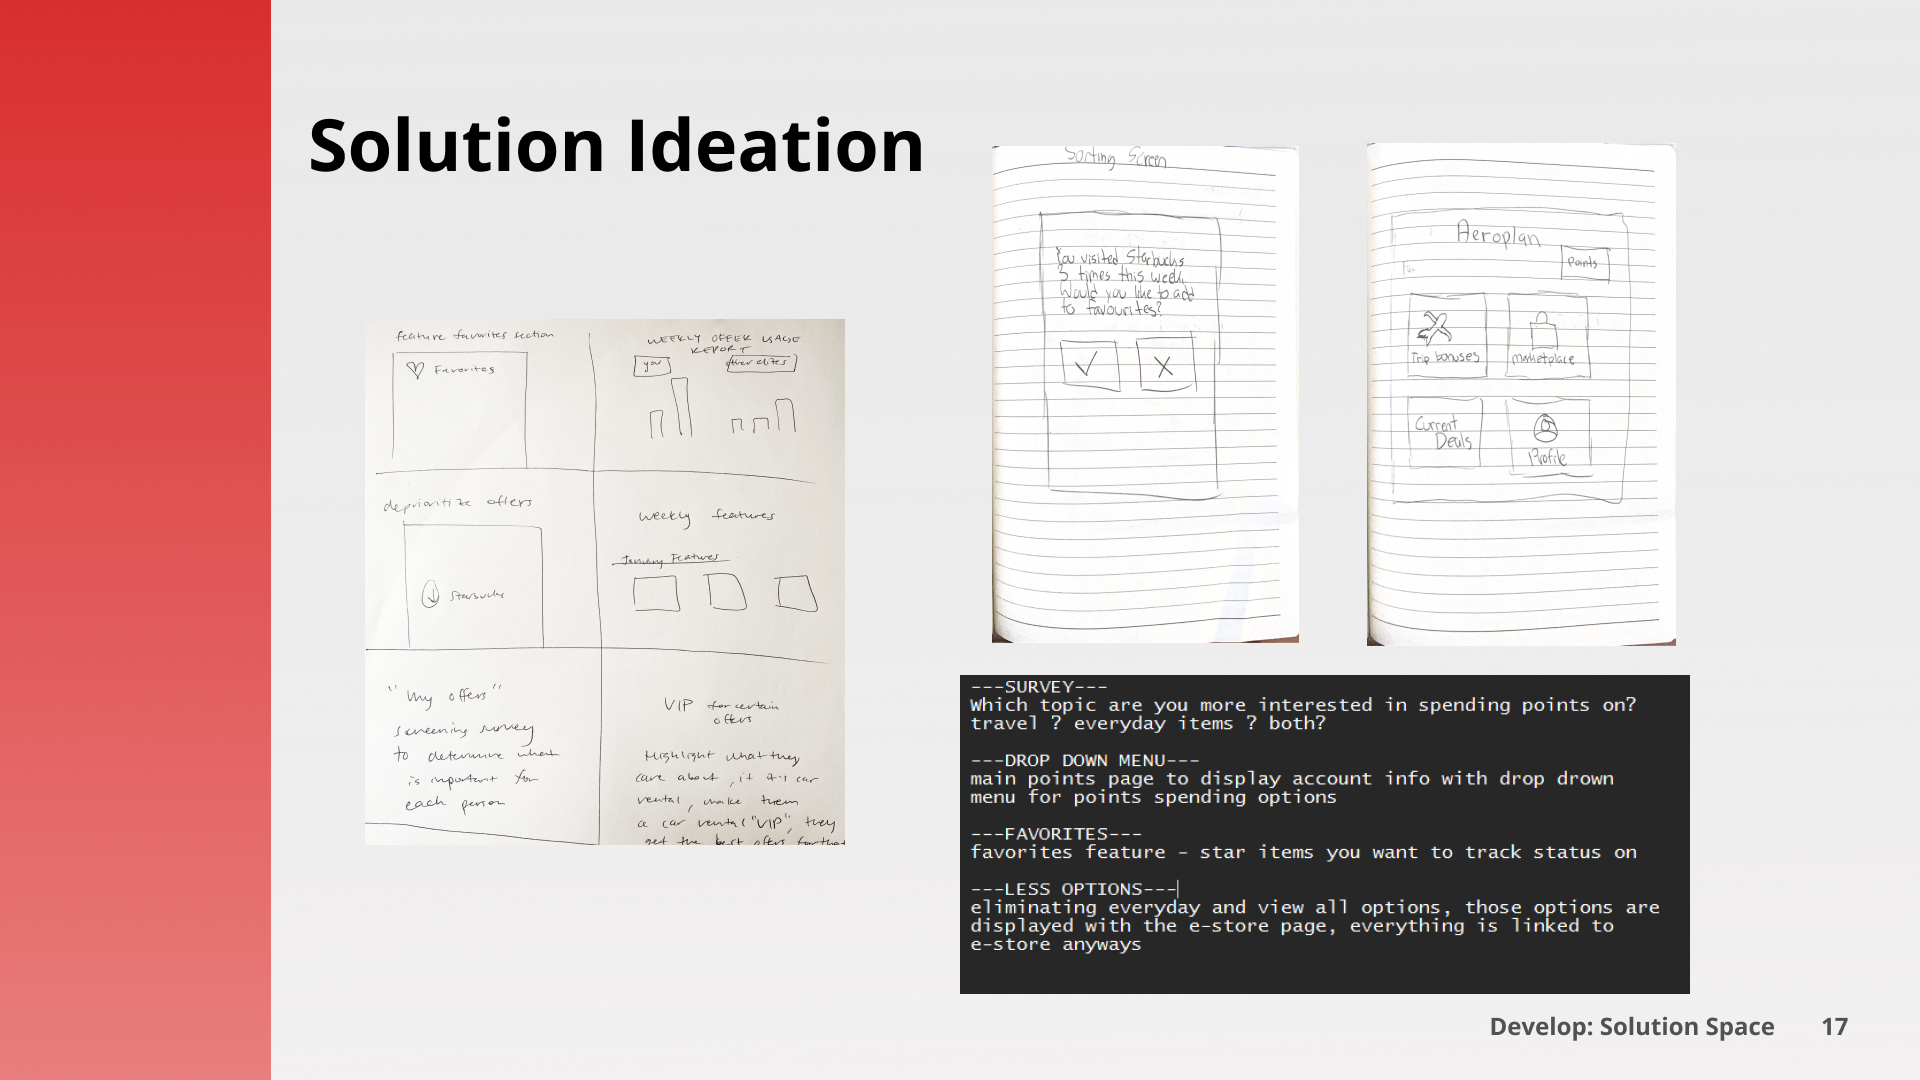 Solution Ideation
feature favorites section
Favorites
WEEKLY OFFER USAGE
REPORT
you
other elites
deprioritize offers
Starbucks
weekly features
January Features
"my offers"
screening survey
to determine what
is important for
each person
VIP for certain
offers
Highlight what they
care about, if it's car
rental, make them
a car rental "VIP", they
get the best offers for that
Sorting Screen
You visited Starbucks
3 times this week.
Would you like to add
to favourites?
Aeroplan
Points
Trip bonuses
marketplace
Current
Deals
Profile
---SURVEY---
Which topic are you more interested in spending points on?
travel ? everyday items ? both?
---DROP DOWN MENU---
main points page to display account info with drop drown
menu for points spending options
---FAVORITES---
favorites feature - star items you want to track status on
---LESS OPTIONS---
eliminating everyday and view all options, those options are
displayed with the e-store page, everything is linked to
e-store anyways
Develop: Solution Space 17